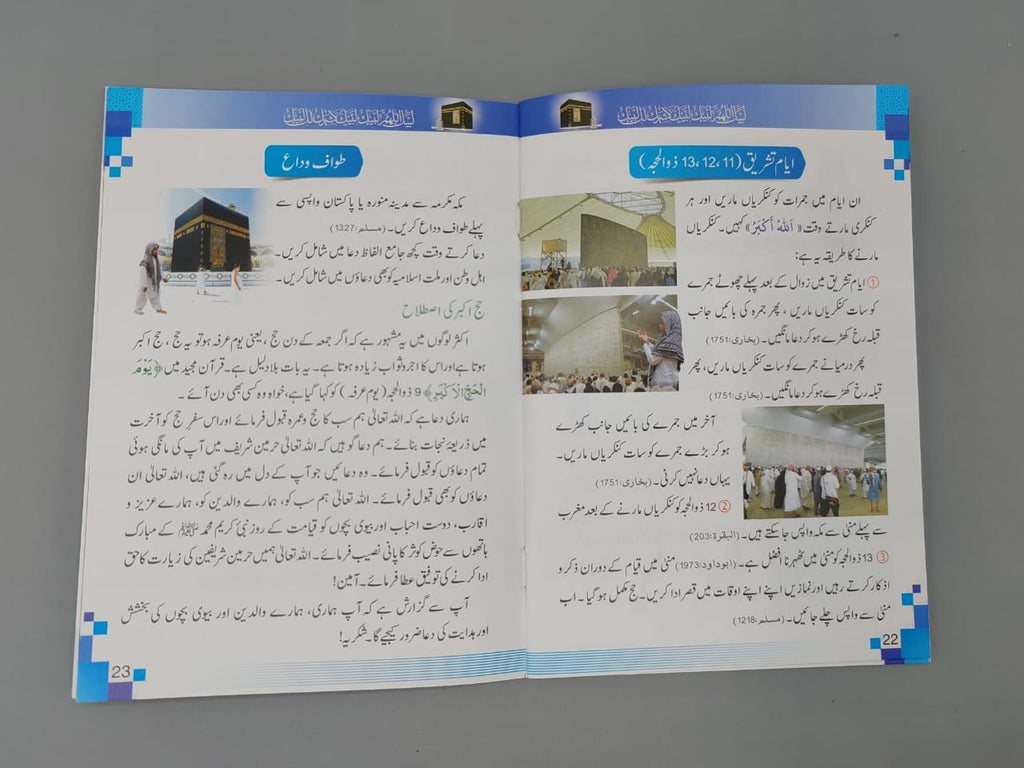 لبیك اللهم لبیك لبیك لا شریك لك لبیك
ایام تشریق (11، 12، 13 ذوالحجہ)
ان ایام میں جمرات کو کنکریاں ماریں اور ہر
کنکری مارتے وقت «اَللهُ أَكْبَرُ» کہیں۔ کنکریاں
مارنے کا طریقہ یہ ہے:
① ایام تشریق میں زوال کے بعد پہلے چھوٹے جمرے
کو سات کنکریاں ماریں ، پھر جمرہ کی بائیں جانب
قبلہ رخ کھڑے ہو کر دعا مانگیں۔ (بخاری:1751)
پھر درمیانے جمرے کو سات کنکریاں ماریں، پھر
قبلہ رخ کھڑے ہو کر دعا مانگیں۔ (بخاری:1751)
آخر میں جمرے کی بائیں جانب کھڑے
ہو کر بڑے جمرے کو سات کنکریاں ماریں۔
یہاں دعا نہیں کرنی۔ (بخاری:1751)
② 12 ذوالحجہ کو کنکریاں مارنے کے بعد مغرب
سے پہلے منیٰ سے مکہ واپس جا سکتے ہیں۔ (البقرة:203)
③ 13 ذوالحجہ کو منیٰ میں ٹھہرنا افضل ہے۔ (ابوداود:1973) منیٰ میں قیام کے دوران ذکر و
اذکار کرتے رہیں اور نمازیں اپنے اپنے اوقات میں قصر ادا کریں۔ حج مکمل ہو گیا ۔ اب
منیٰ سے واپس چلے جائیں۔ (مسلم:1218)
22
لبیك اللهم لبیك لبیك لا شریك لك لبیك
طواف وداع
مکہ مکرمہ سے مدینہ منورہ یا پاکستان واپسی سے
پہلے طواف وداع کریں۔ (مسلم:1327)
دعا کرتے وقت کچھ جامع الفاظ دعا میں شامل کریں۔
اہل وطن اور ملت اسلامیہ کو بھی دعاؤں میں شامل کریں۔
حج اکبر کی اصطلاح
اکثر لوگوں میں یہ مشہور ہے کہ اگر جمعہ کے دن حج ، یعنی یوم عرفہ ہو تو یہ حج ، حج اکبر
ہوتا ہے اور اس کا اجر و ثواب زیادہ ہوتا ہے۔ یہ بات بلا دلیل ہے۔ قرآن مجید میں ﴿يَوْمَ
الْحَجِّ الْأَكْبَرِ﴾ 9 ذوالحجہ (یوم عرفہ) کو کہا گیا ہے، خواہ وہ کسی بھی دن آئے ۔
ہماری دعا ہے کہ اللہ تعالیٰ ہم سب کا حج و عمرہ قبول فرمائے اور اس سفر حج کو آخرت
میں ذریعۂ نجات بنائے۔ ہم دعا گو ہیں کہ اللہ تعالیٰ حرمین شریف میں آپ کی مانگی ہوئی
تمام دعاؤں کو قبول فرمائے۔ وہ دعائیں جو آپ کے دل میں رہ گئی ہیں، اللہ تعالیٰ ان
دعاؤں کو بھی قبول فرمائے۔ اللہ تعالیٰ ہم سب کو، ہمارے والدین کو، ہمارے عزیز و
اقارب، دوست احباب اور بیوی بچوں کو قیامت کے روز نبی کریم محمد ﷺ کے مبارک
ہاتھوں سے حوض کوثر کا پانی نصیب فرمائے۔ اللہ تعالیٰ ہمیں حرمین شریفین کی زیارت کا حق
ادا کرنے کی توفیق عطا فرمائے۔ آمین!
آپ سے گزارش ہے کہ آپ ہماری، ہمارے والدین اور بیوی بچوں کی بخشش
اور ہدایت کی دعا ضرور کیجیے گا۔ شکریہ!
23